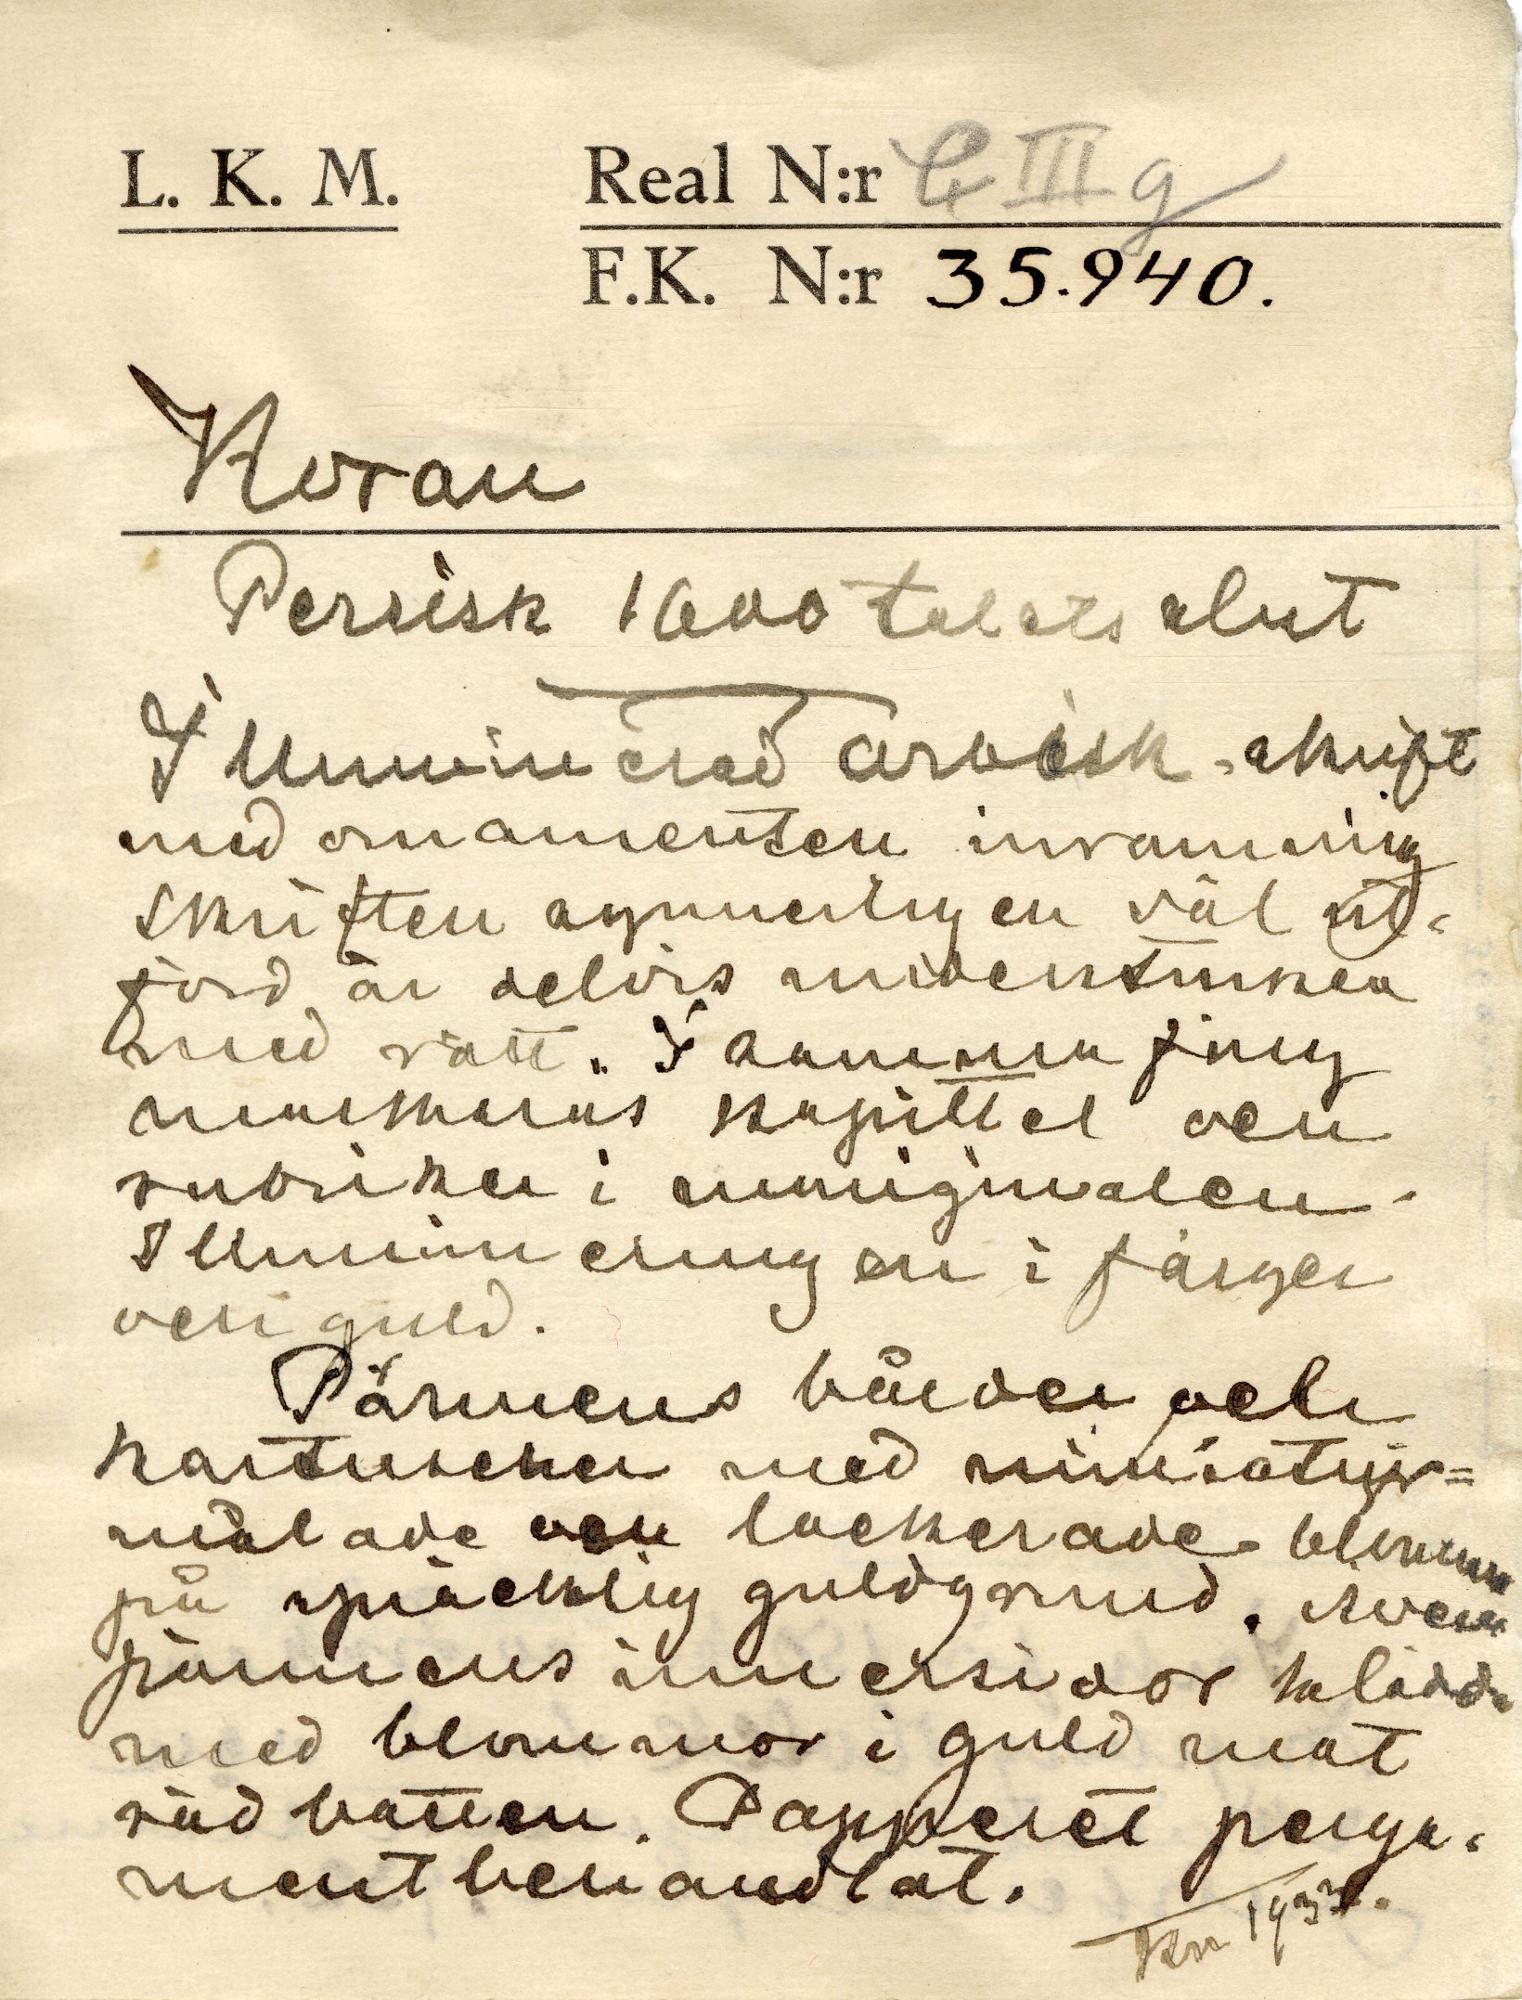 L. K. M. Real N:r G III g
F.K. N:r 35.940.
Koran
Persisk 1600 talets slut
Illuminerad arabisk skrift
med ornamenten inramning
Skriften synnerligen väl ut-
förd är delvis understruken
med rött. I samma färg
markeras kapittel och
rubriker i
Illumineringen i färger
och guld.
Pärmens bårder och
kartuscher med miniatyr=
målade och lackerade blommor
på spräcklig guldgrund. Även
pärmens innersidor klädda
med blommor i guld mot
röd botten. Papperet perga-
mentbehandlat.
1933.